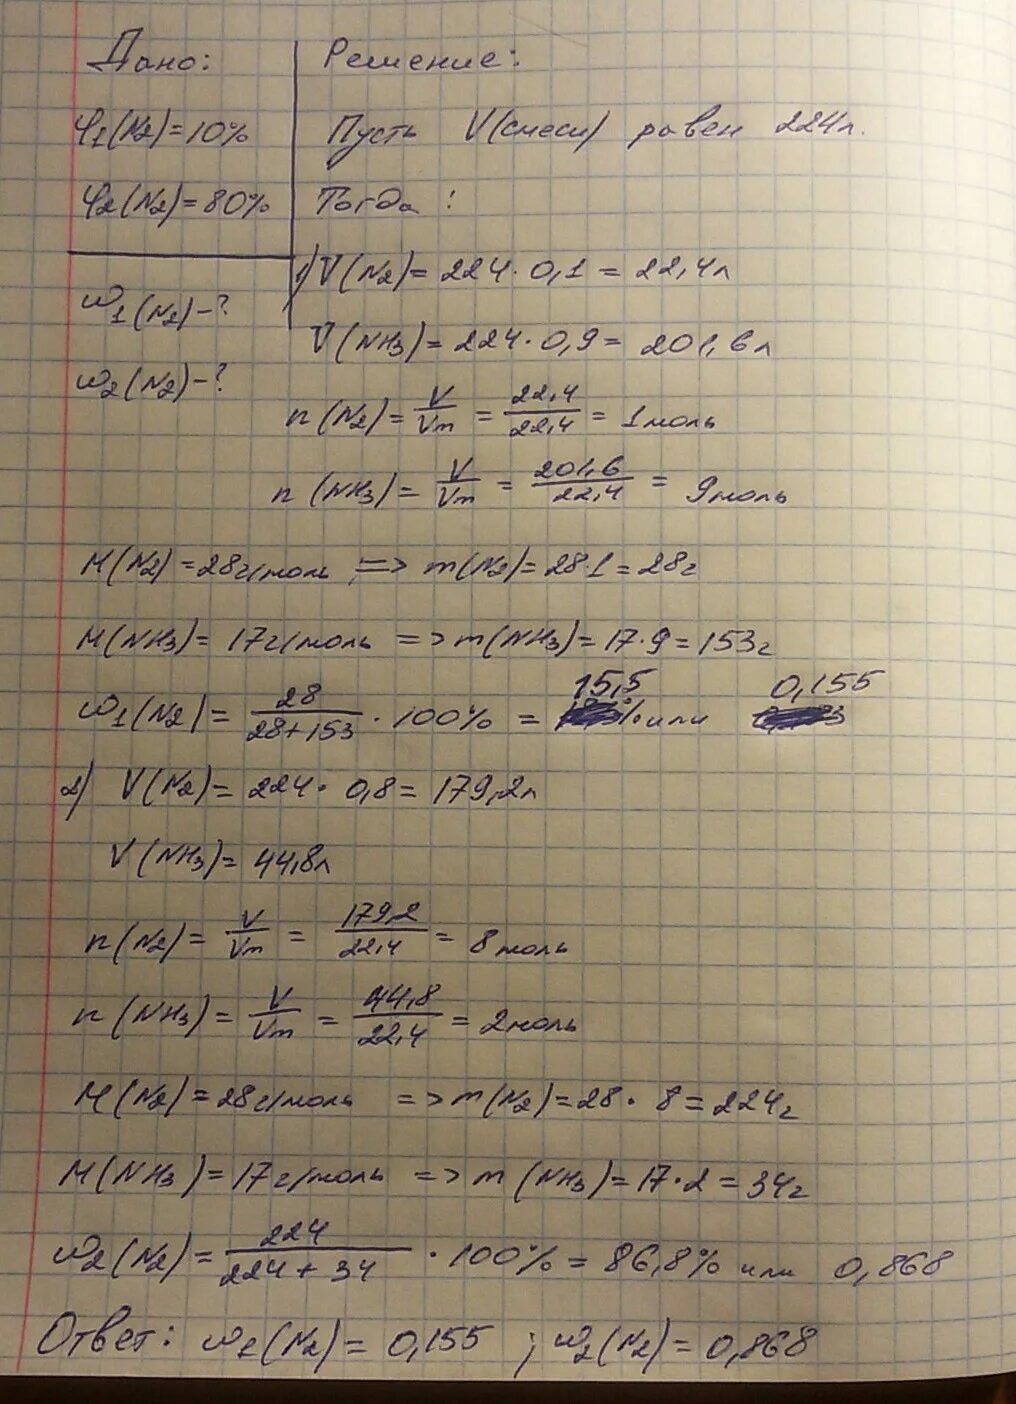 Дано:
φ1(N2)=10%
φ2(N2)=80%
ω1(N2)-?
ω2(N2)-?
Решение:
Пусть V(смеси) равен 224л.
Тогда:
1) V(N2)= 224·0,1 = 22,4л
V(NH3)= 224·0,9= 201,6л
n(N2)= V/Vm = 22,4/22,4 = 1моль
n(NH3)= V/Vm = 201,6/22,4 = 9моль
M(N2)=28г/моль => m(N2)=28·1=28г
M(NH3)= 17г/моль => m(NH3)=17·9=153г
ω1(N2)= 28/28+153 · 100% = 15,5 % или 0,155
2) V(N2)= 224·0,8=179,2л
V(NH3)= 44,8л
n(N2)= V/Vm = 179,2/22,4 = 8моль
n(NH3)= V/Vm = 44,8/22,4 = 2моль
M(N2)=28г/моль => m(N2)=28·8=224г
M(NH3)=17г/моль => m(NH3)=17·2=34г
ω2(N2)= 224/224+34 · 100%=86,8% или 0,868
Ответ: ω1(N2)= 0,155 ; ω2(N2)=0,868